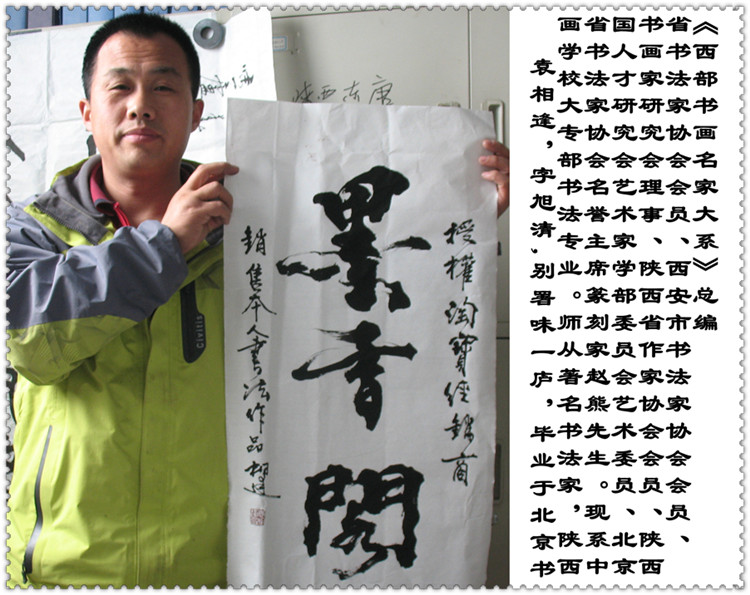 授權淘寶經銷商
墨香閣
銷售本人書法作品
Civitis
袁相逢，字旭清，别署味一庐，毕业于北京书
画学校大专部书法专业。师从著名书法家，陕西
省书法家协会名誉主席篆刻家赵熊先生。现系中
国人才研究会艺术家学部委员会艺术委员、北京
书画家研究会理事、陕西省作家协会会员、陕西
省书法家协会会员、西安市书法家协会会员、
《西部书画名家大系》总编